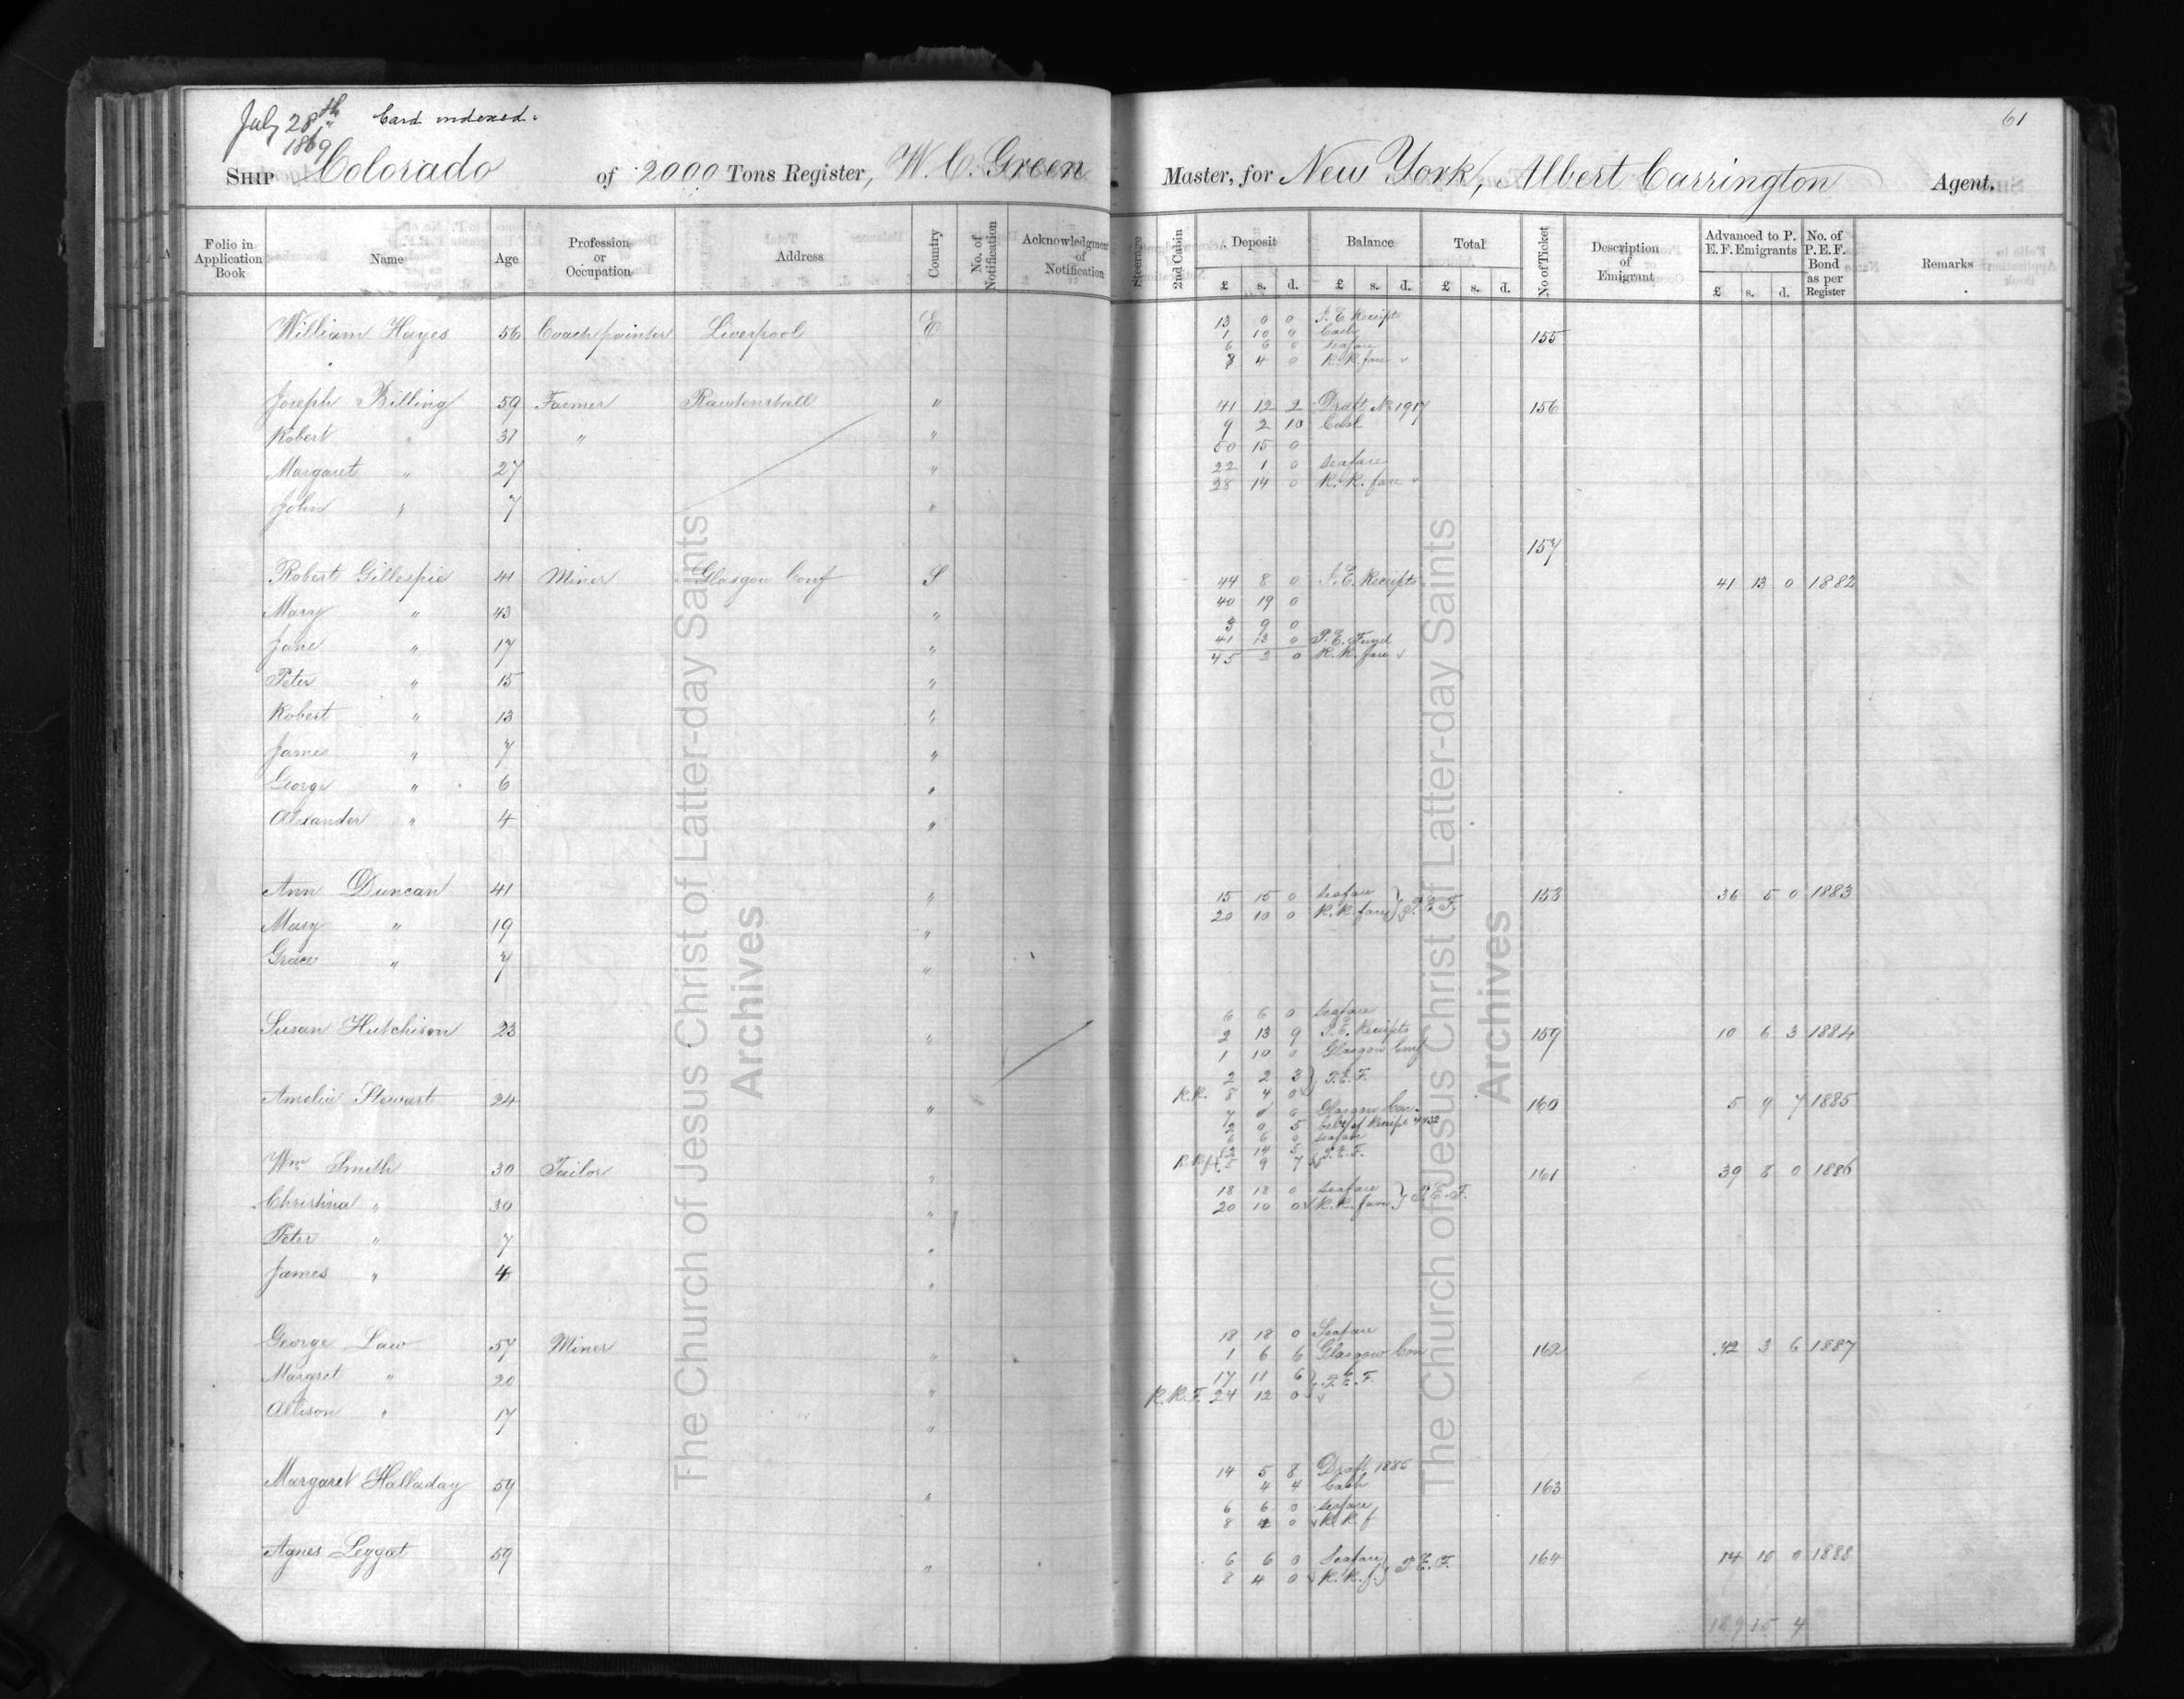 July 28th Card indexed.
1869
SHIP Colorado of 2000 Tons Register, W. C. Green Master, for New York, Albert Carrington Agent.
61
Folio in Application Book Name Age Profession or Occupation Address Country No. of Notification Acknowledgment of Notification Steerage 2nd Cabin Deposit Balance Total No of Ticket Description of Emigrant Advanced to P. E. F. Emigrants No. of P.E.F. Bond as per Register Remarks
£ s. d. £ s. d. £ s. d. £ s. d.
13 0 0 P. E. Receipt
William Hayes 56 Coach painter Liverpool E 1 10 0 Cash 155
6 6 0 Seafare
8 4 0 R. R. fare
Joseph Billing 59 Farmer Rawtenstall " 41 12 2 Draft No 1917 156
9 2 10 Cash
Robert " 31 " " 50 15 0
Margaret " 27 " 22 1 0 Seafare
28 14 0 R. R. fare
John " 7 "
157
Robert Gillespie 41 Miner Glasgow Conf S 44 8 0 P. E. Receipts 41 13 0 1882
40 19 0
Mary " 43 " 3 9 0
41 13 0 P. E. Fund
Jane " 17 " 45 2 0 R. R. fare
Peter " 15 "
Robert " 13 "
James " 7 "
George " 6 "
Alexander " 4 "
Ann Duncan 41 " 15 15 0 Seafare 158 36 5 0 1883
20 10 0 R. R. fare } P. E. F.
Mary " 19 "
Grace " 7 "
6 6 0 Seafare
Susan Hutchison 23 " 2 13 9 P. E. Receipts 159 10 6 3 1884
1 10 0 Glasgow Conf
2 2 3 } P. E. F.
R.R. 8 4 0
Amelia Stewart 24 " Glasgow Con. 160 5 9 7 1885
2 0 5 Receipt 4432
6 6 0 Seafare
12 14 5 P. E. F.
5 9 7
Wm Smith 30 Tailor " 161 39 8 0 1886
18 18 0 Seafare
Christina " 30 " 20 10 0 R. R. fare } P. E. F.
Peter " 7 "
James " 4 "
18 18 0 Seafare
George Law 57 Miner " 1 6 6 Glasgow Con 162 42 3 6 1887
Margret " 20 " 17 11 6 } P. E. F.
R. R. F. 24 12 0
Allison " 17 "
14 5 8 Draft 1885
Margaret Halladay 59 " 4 4 Cash 163
6 6 0 Seafare
8 4 0 R. R. f
Agnes Leggat 59 " 6 6 0 Seafare 164 14 10 0 1888
8 4 0 R. R. f. } P. E. F.
189 15 4
The Church of Jesus Christ of Latter-day Saints
Archives
The Church of Jesus Christ of Latter-day Saints
Archives